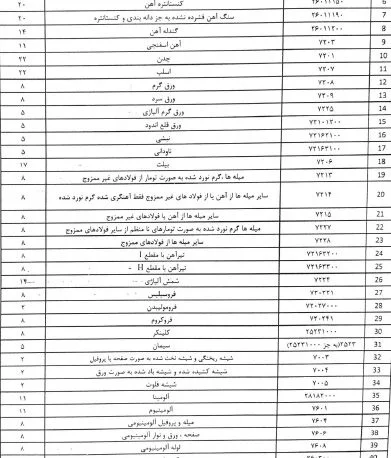 6 ۲۶۰۱۱۱۵۰ کنسانتره آهن ۲۰
7 ۲۶۰۱۱۱۹۰ سنگ آهن فشرده نشده به جز دانه بندی و کنسانتره ۲۰
8 ۲۶۰۱۱۲۰۰ گندله آهن ۱۴
9 ۷۲۰۳ آهن اسفنجی ۱۱
10 ۷۲۰۱ چدن ۲۲
11 ۷۲۰۷ اسلب ۲۲
12 ۷۲۰۸ ورق گرم ۸
13 ۷۲۰۹ ورق سرد ۸
14 ۷۲۲۵ ورق گرم آلیاژی ۵
15 ۷۲۱۰۱۲۰۰ ورق قلع اندود ۵
16 ۷۲۱۶۲۱۰۰ نبشی ۵
17 ۷۲۱۶۳۱۰۰ ناودانی ۵
18 ۷۲۰۶ بیلت ۱۷
19 ۷۲۱۳ میله ها ،گرم نورد شده به صورت تومار از فولادهای غیر ممزوج ۸
20 ۷۲۱۴ سایر میله ها از آهن یا از فولاد های غیر ممزوج فقط آهنگری شده گرم نورد شده ۸
21 ۷۲۱۵ سایر میله ها از آهن یا فولادهای غیر ممزوج ۸
22 ۷۲۲۷ میله ها گرم نورد شده به صورت تومارهای نا منظم از سایر فولادهای ممزوج ۸
23 ۷۲۲۸ سایر میله ها از آهن ۸
24 ۷۲۱۶۳۲۰۰ تیرآهن با مقطع I ۸
25 ۷۲۱۶۳۳۰۰ تیرآهن با مقطع H ۸
26 ۷۲۲۴ شمش آلیاژی ۱۴
27 ۷۲۰۲۲۱ فروسیلیس ۸
28 ۷۲۰۲۷۰۰۰ فرومولیبدن ۲
29 ۷۲۰۲۴۱ فروکروم ۸
30 ۲۵۲۳۱۰۰۰ کلینکر ۸
31 ۲۵۲۳(به جز ۲۵۲۳۱۰۰۰) سیمان ۵
32 ۷۰۰۳ شیشه ریختگی و شیشه تخت شده به صورت صفحه یا پروفیل ۲
33 ۷۰۰۴ شیشه کشیده شده و شیشه باد شده به صورت ورق ۲
34 ۷۰۰۵ شیشه فلوت ۲
35 ۲۸۱۸۲۰۰۰ آلومینا ۱۱
36 ۷۶۰۱ آلومینیوم ۱۱
37 ۷۶۰۴ میله و پروفیل آلومینیومی ۸
38 ۷۶۰۶ صفحه ، ورق و نوار آلومینیومی ۸
39 ۷۶۰۸ لوله آلومینیومی ۸